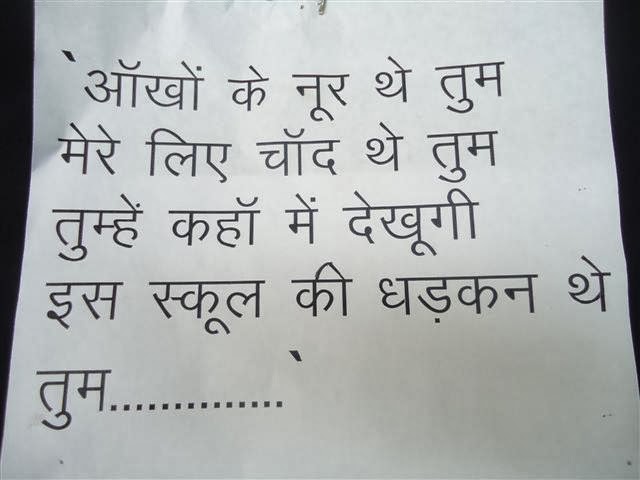 `ऑखों के नूर थे तुम
मेरे लिए चॉद थे तुम
तुम्हें कहॉ में देखूगी
इस स्कूल की धड़कन थे
तुम..............`